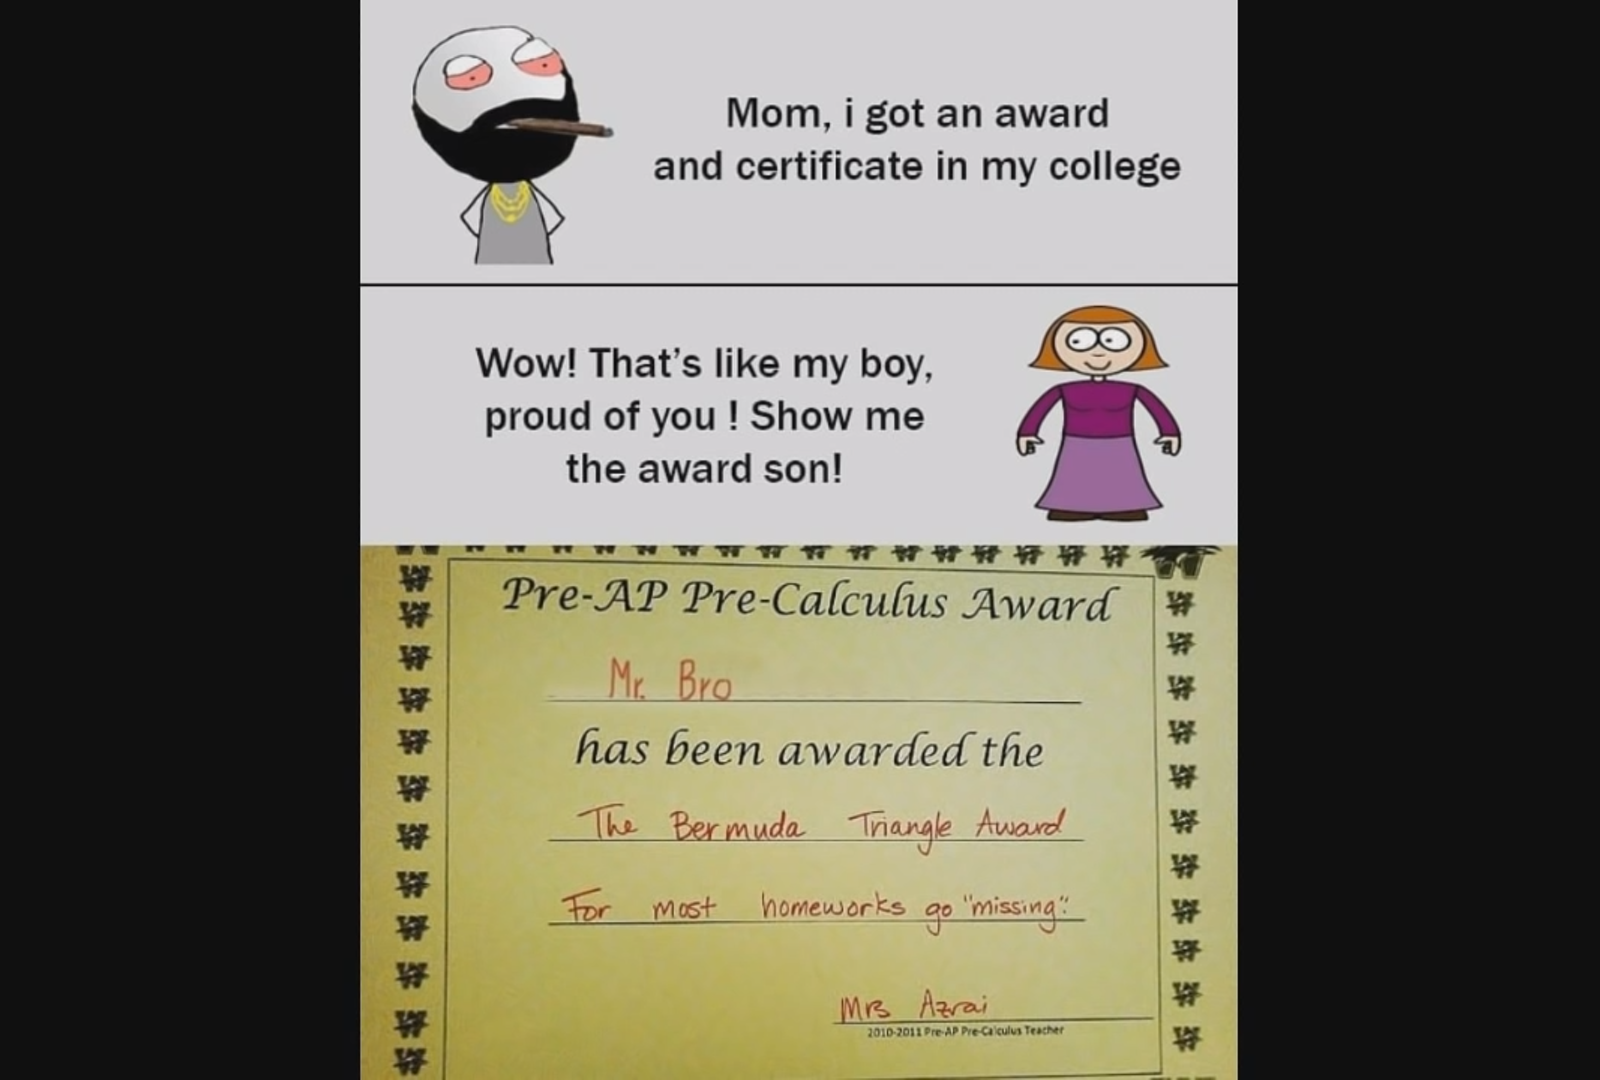 Mom, i got an award
and certificate in my college
Wow! That's like my boy,
proud of you ! Show me
the award son!
Pre-AP Pre-Calculus Award
Mr. Bro
has been awarded the
The Bermuda Triangle Award
For most homeworks go "missing".
Mrs Azrai
2010-2011 Pre-AP Pre-Calculus Teacher